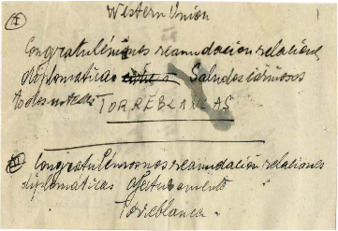 ①
Western Union
Congratulémonos reanudación relaciones
diplomáticas Saludos cariñosos
todos ustedes TORREBLANCAS
Congratulémosnos reanudación relaciones
diplomáticas afectuosamente
Torreblanca.